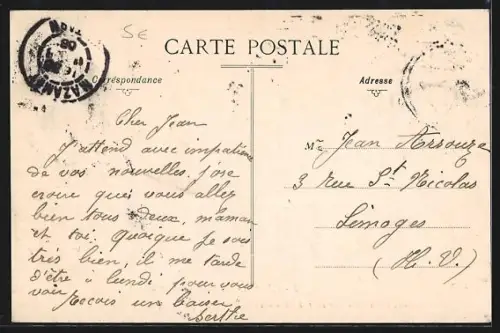 5€
CARTE POSTALE
Correspondance
Adresse
MAZAMET
Cher Jean
J'attend avec impatience
de vos nouvelles, j'ose
croire que vous allez
bien tous deux, maman
et toi. Quoique je vais
très bien, il me tarde
d'être à lundi pour vous
voir
Recois un baiser
Berthe
M. Jean Arsouze
3 Rue St Nicolas
Limoges
(H. V.)